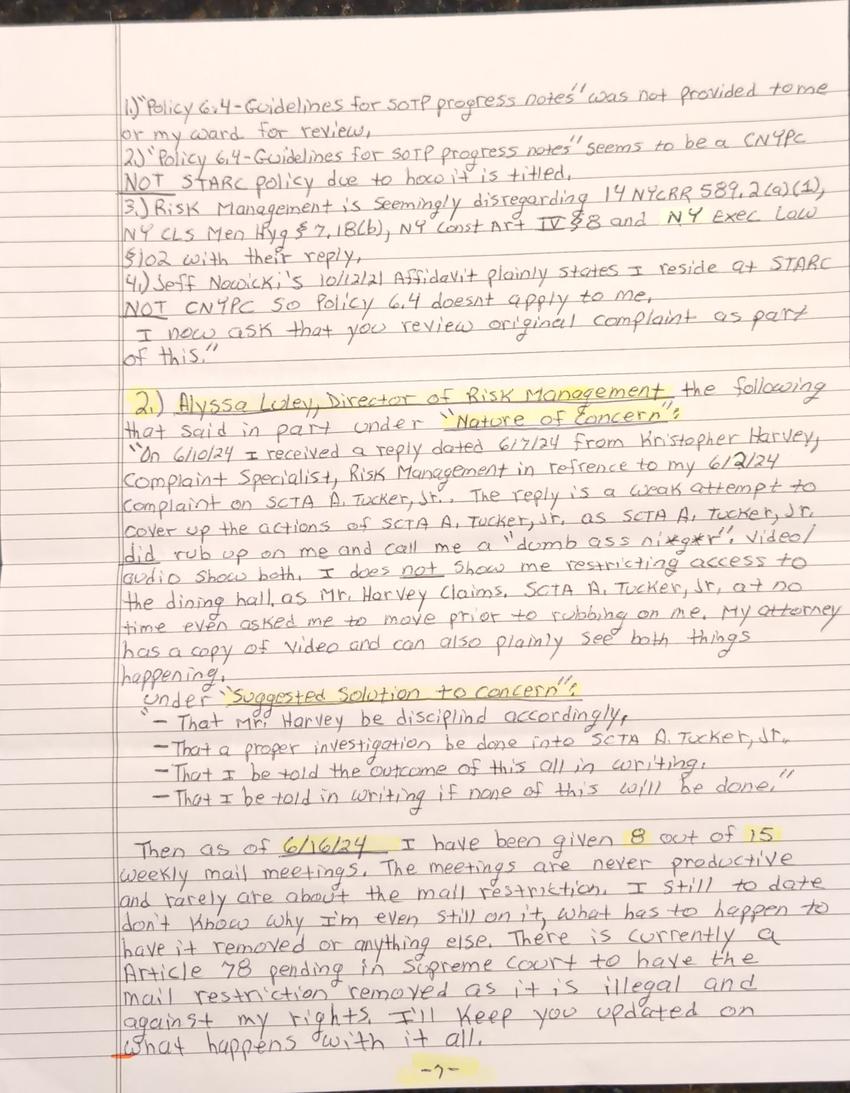 1.) "Policy 6.4-Guidelines for SOTP progress notes" was not provided to me
or my ward for review,
2.) "Policy 6.4-Guidelines for SOTP progress notes" seems to be a CNYPC
NOT STARC policy due to how it is titled.
3.) Risk Management is seemingly disregarding 14 NYCRR 589.2(a)(1),
NY CLS Men Hyg § 7.18(b), NY Const Art IV § 8 and NY Exec Law
§102 with their reply,
4.) Jeff Nowicki's 10/12/21 Affidavit plainly states I reside at STARC
NOT CNYPC so Policy 6.4 doesnt apply to me.
I now ask that you review original complaint as part
of this."
2.) Alyssa Luley, Director of Risk Management the following
that said in part under "Nature of Concern":
"On 6/10/24 I received a reply dated 6/7/24 from Kristopher Harvey,
Complaint Specialist, Risk Management in refrence to my 6/2/24
complaint on SCTA A. Tucker, Jr.. The reply is a weak attempt to
cover up the actions of SCTA A. Tucker, Jr. as SCTA A. Tucker, Jr.
did rub up on me and call me a "dumb ass ni*g*r". Video/
audio show both. I does not show me restricting access to
the dining hall, as Mr. Harvey claims. SCTA A. Tucker, Jr, at no
time even asked me to move prior to rubbing on me. My attorney
has a copy of video and can also plainly see both things
happening.
under "Suggested Solution to Concern":
"- That Mr. Harvey be disciplind accordingly,
- That a proper investigation be done into SCTA A. Tucker, Jr.
- That I be told the outcome of this all in writing.
- That I be told in writing if none of this will be done."
Then as of 6/16/24 I have been given 8 out of 15
weekly mail meetings. The meetings are never productive
and rarely are about the mail restriction. I still to date
don't know why I'm even still on it, what has to happen to
have it removed or anything else. There is currently a
Article 78 pending in Supreme court to have the
mail restriction removed as it is illegal and
against my rights. I'll keep you updated on
what happens with it all.
-7-